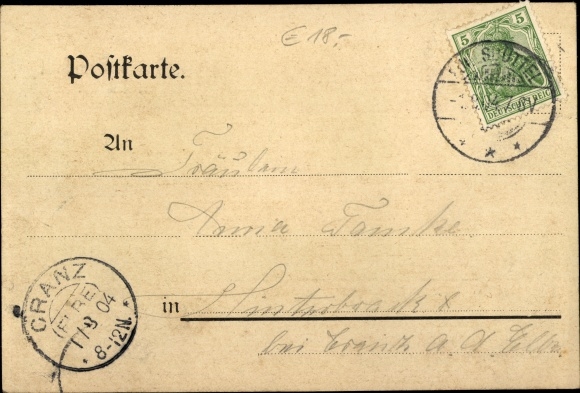 € 18,-
Postkarte.
5 5
DEUTSCHES REICH
An
Fräulein
Anna Tamke
in Hinterbrack
bei Cranz a. d. Elbe
CRANZ
(ELBE)
04
8-12N.